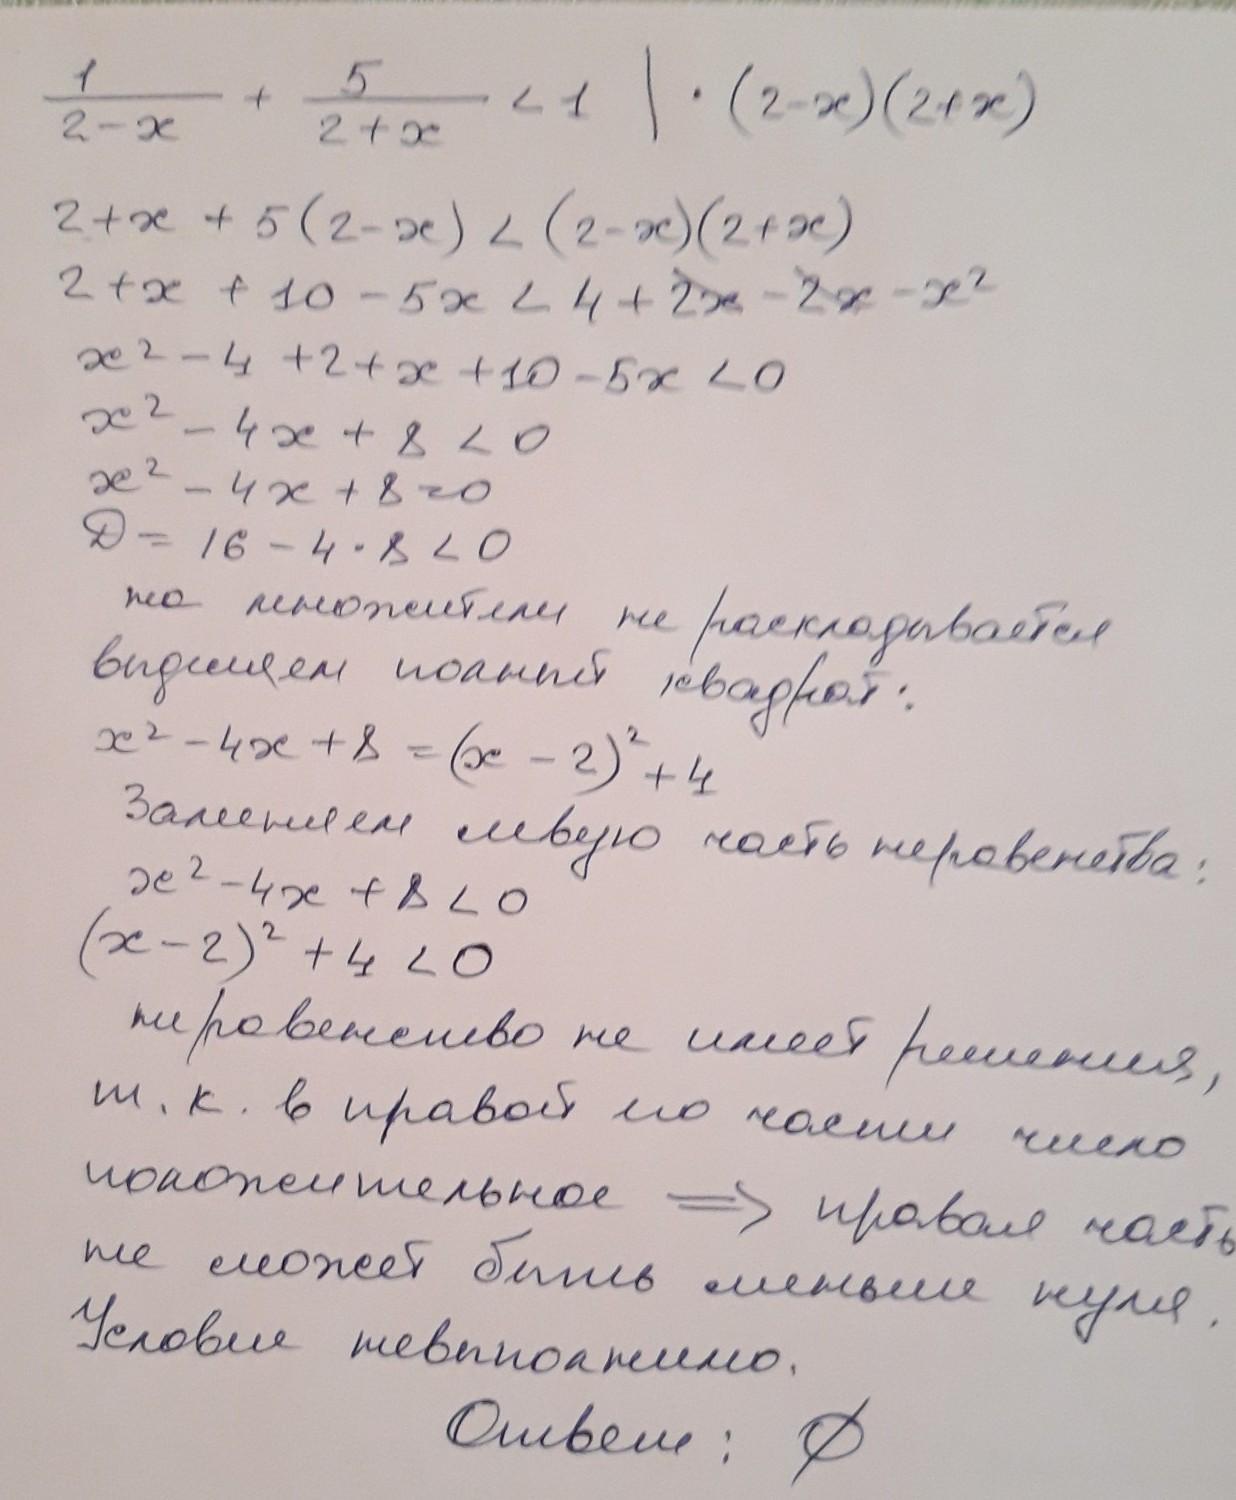 1/(2-x) + 5/(2+x) < 1 | · (2-x)(2+x)
2+x + 5(2-x) < (2-x)(2+x)
2+x + 10 - 5x < 4 + 2x - 2x - x²
x² - 4 + 2 + x + 10 - 5x < 0
x² - 4x + 8 < 0
x² - 4x + 8 = 0
D = 16 - 4 · 8 < 0
на множители не раскладывается
выделяем полный квадрат:
x² - 4x + 8 = (x - 2)² + 4
Заменяем левую часть неравенства:
x² - 4x + 8 < 0
(x - 2)² + 4 < 0
неравенство не имеет решения,
т. к. в правой по части число
положительное ⟹ правая часть
не может быть меньше нуля.
Условие невыполнимо.
Ответ: ∅